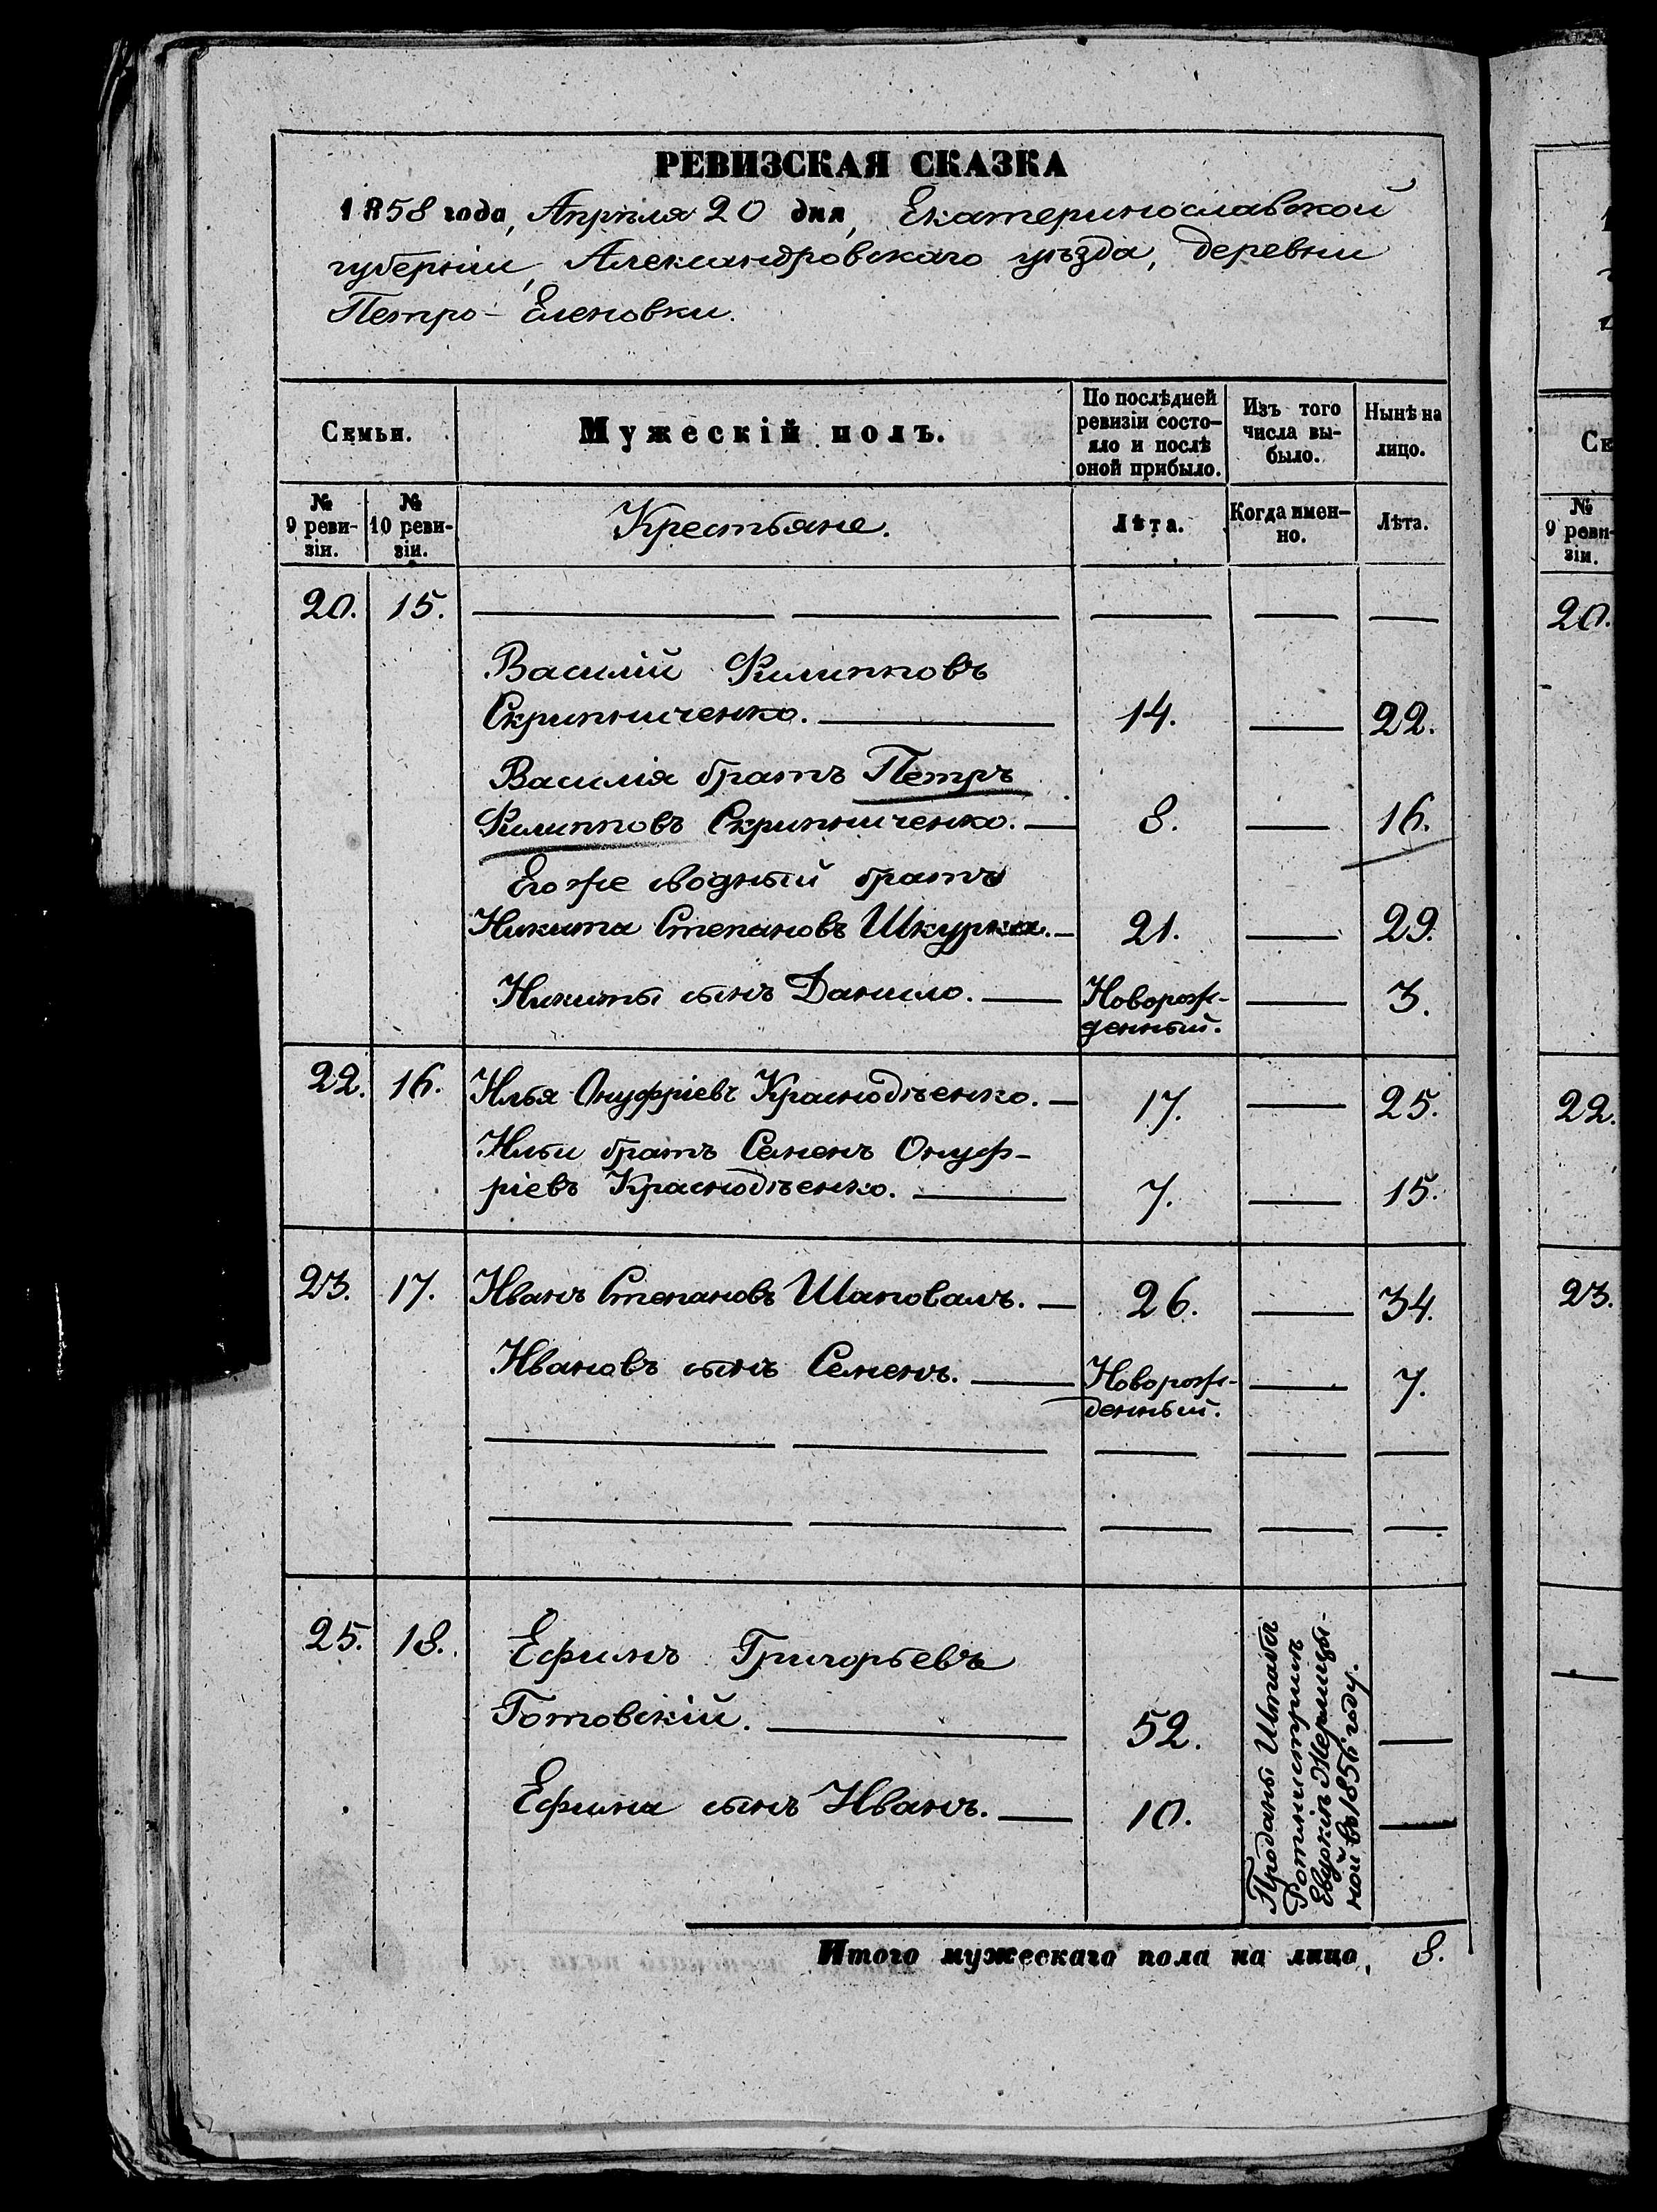 РЕВИЗСКАЯ СКАЗКА
1858 года, Апрѣля 20 дня, Екатеринославской
губерніи, Александровскаго уѣзда, деревни
Петро-Еленовки.
Семьи.
Мужескій полъ.
По послѣдней
ревизіи состо-
яло и послѣ
оной прибыло.
Изъ того
числа вы-
было.
Нынѣ на
лицо.
№
9 реви-
зіи.
№
10 реви-
зіи.
Крестьяне.
Лѣта.
Когда имен-
но.
Лѣта.
20. 15.
Василій Филипповъ
Скрипниченко. 14. 22.
Василія братъ Петръ
Филипповъ Скрипниченко. 8. 16.
Его же сводный братъ
Никита Степановъ Шкурка. 21. 29.
Никиты сынъ Данило. Новорож-
денный. 3.
22. 16. Илья Онуфріевъ Краснодѣенко. 17. 25.
Ильи братъ Семенъ Онуф-
ріевъ Краснодѣенко. 7. 15.
23. 17. Иванъ Степановъ Шаповалъ. 26. 34.
Ивановъ сынъ Семенъ. Новорож-
денный. 7.
25. 18. Ефимъ Григорьевъ
Готовскій. 52.
Ефима сынъ Иванъ. 10.
Проданы Штабъ
Ротмистршѣ
ной въ 1856 году.
Итого мужескаго пола на лицо, 8.
Се
№
9 реви-
зіи.
20.
22.
23.